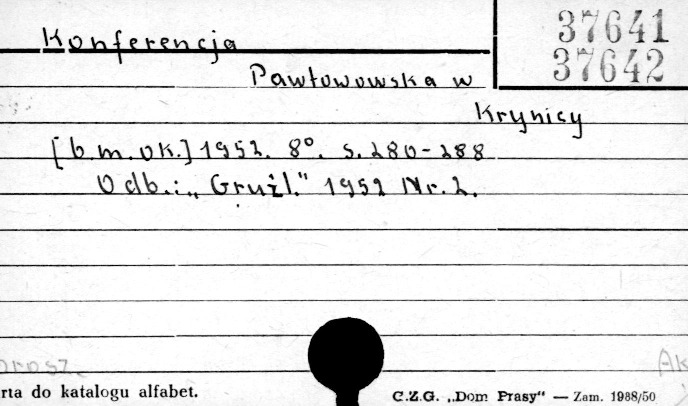 37641
37642
Konferencja
Pawłowowska w
Krynicy
[b.m.ok.] 1952. 8°. s. 280-288
Odb.: „Gruźl." 1952 Nr. 2.
orosz.
Ak
rta do katalogu alfabet.
C.Z.G. „Dom Prasy" — Zam. 1988/50